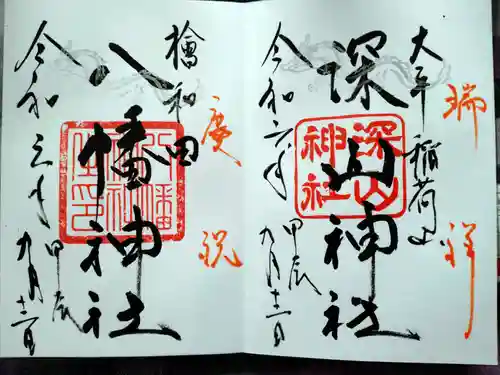 大平稲荷山
瑞祥
深山神社
深山
神社
令和六年
甲辰
九月十二日
檜和田
慶祝
八幡神社
令和六年
甲辰
九月十二日